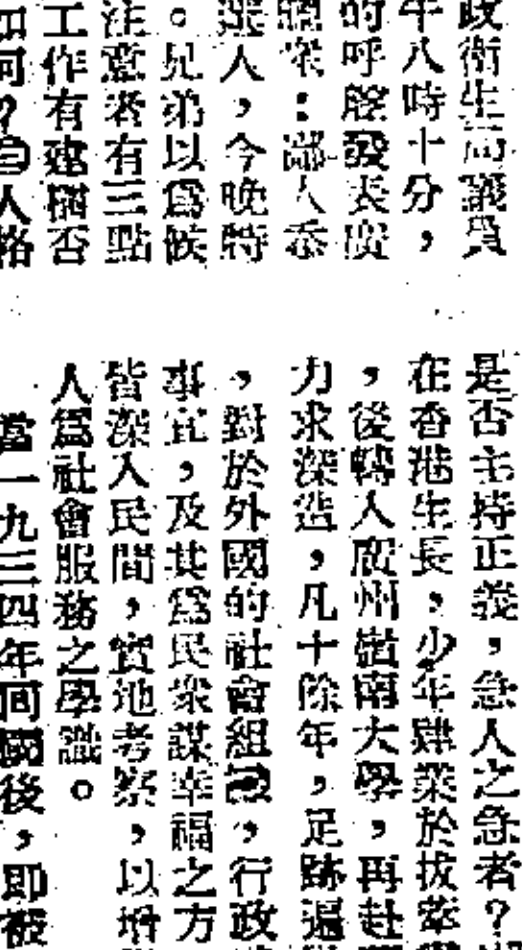 政衛生局議員
午八時十分，
的呼聲發表廣
聽衆：鄙人忝
選人，今晚特
。兄弟以爲候
注意者有三點
工作有建樹否
如何？㊂人格
是否主持正義，急人之急者？
在香港生長，少年肄業於拔萃
，後轉入廣州嶺南大學，再赴
力求深造，凡十餘年，足跡遍
，對於外國的社會組織，行政
事宜，及其爲民衆謀幸福之方
皆深入民間，實地考察，以增
人爲社會服務之學識。
當一九三四年回國後，即被